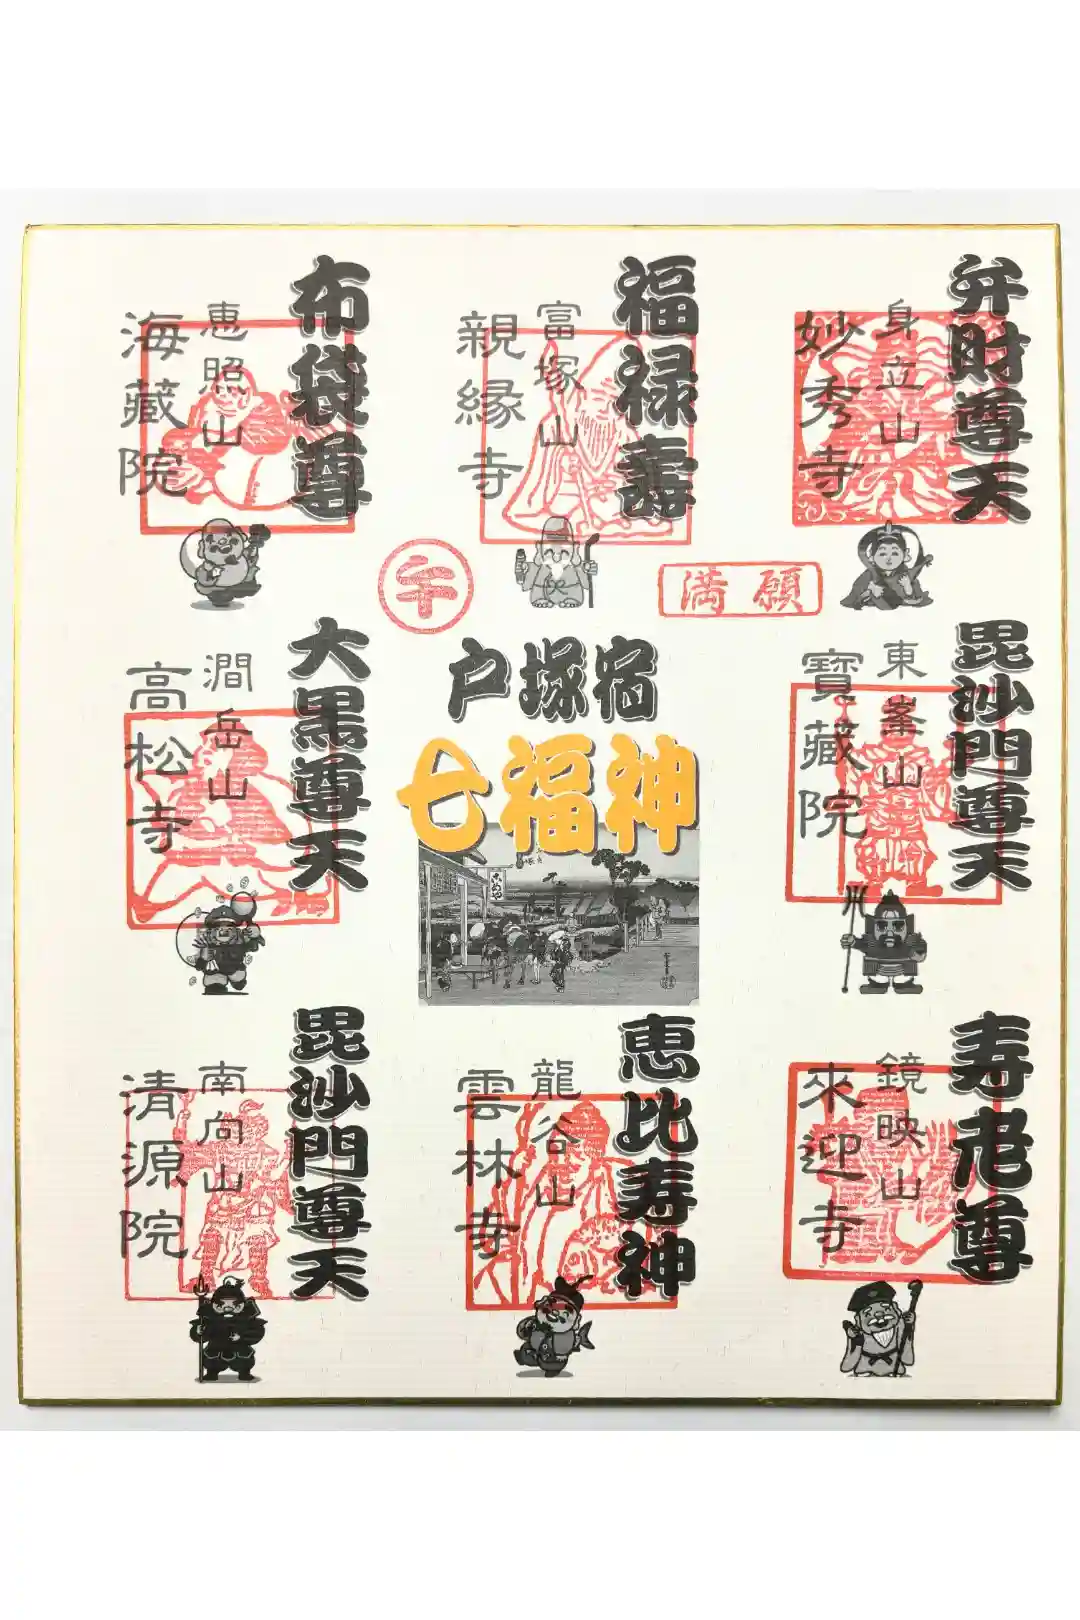 弁財尊天
身立山
妙秀寺
福禄壽
富塚山
親縁寺
布袋尊
恵照山
海藏院
満願
午
毘沙門尊天
東峯山
寶藏院
戸塚宿
七福神
大黒尊天
澗岳山
高松寺
寿老尊
鏡映山
來迎寺
恵比寿神
龍谷山
雲林寺
毘沙門尊天
南向山
清源院